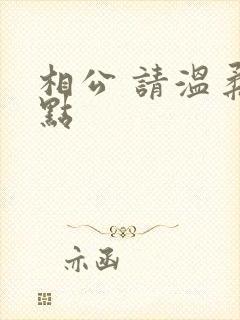 相公 請溫柔
點
亦函